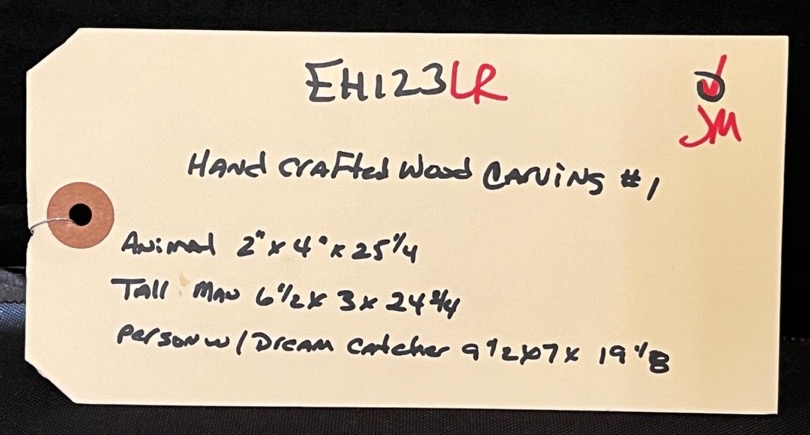 EH123LR
JM
Hand Crafted Wood Carving #1
Animal 2" x 4" x 25 1/4
Tall Man 6 1/2 x 3 x 24 3/4
Person w/ Dream Catcher 9 1/2 x 7 x 19 1/8